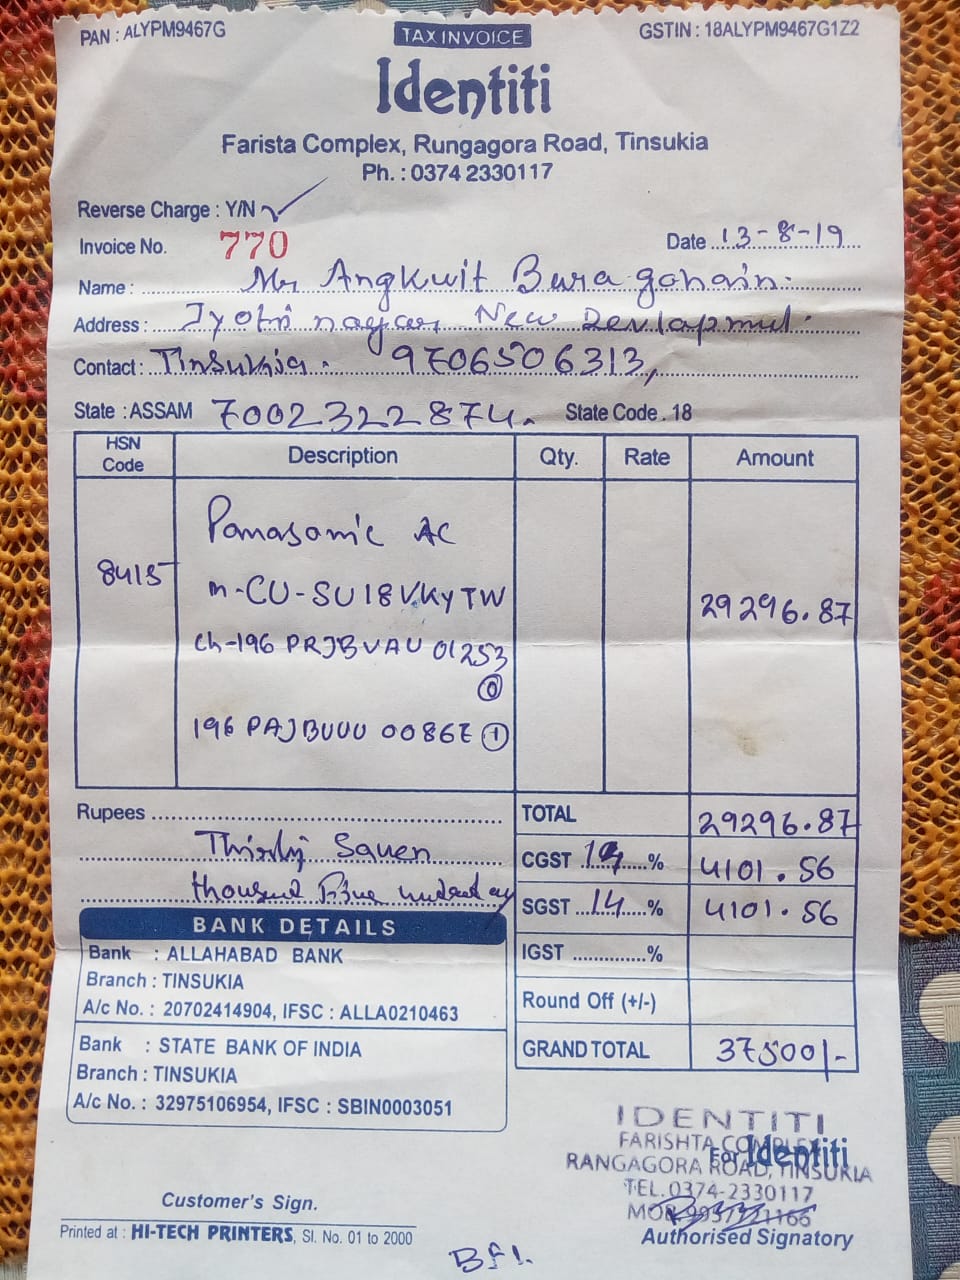 PAN : ALYPM9467G
TAX INVOICE
GSTIN : 18ALYPM9467G1Z2
Identiti
Farista Complex, Rungagora Road, Tinsukia
Ph. : 0374 2330117
Reverse Charge : Y/N ✓
Invoice No. 770
Date 13-8-19
Name : Mr Angkuit Bura gohain.
Address : Jyoti nagar, New Devlapmul.
Contact : Tinsukia. 9706506313,
State : ASSAM 7002322874. State Code . 18
HSN Code Description Qty. Rate Amount
Panasonic AC
8415
m-CU-SU18VKYTW 29296.87
Ch-196 PRJBVAU 01253
0
196 PAJBUUU 00867 1
Rupees
Thirty Saven
thousand
TOTAL 29296.87
CGST 14 % 4101.56
SGST 14 % 4101.56
IGST %
Round Off (+/-)
GRAND TOTAL 37500/-
BANK DETAILS
Bank : ALLAHABAD BANK
Branch : TINSUKIA
A/c No. : 20702414904, IFSC : ALLA0210463
Bank : STATE BANK OF INDIA
Branch : TINSUKIA
A/c No. : 32975106954, IFSC : SBIN0003051
IDENTITI
FARISHTA COMPLEX
For Identiti
RANGAGORA ROAD, TINSUKIA
TEL.0374-2330117
Authorised Signatory
Customer's Sign.
Printed at : HI-TECH PRINTERS, Sl. No. 01 to 2000